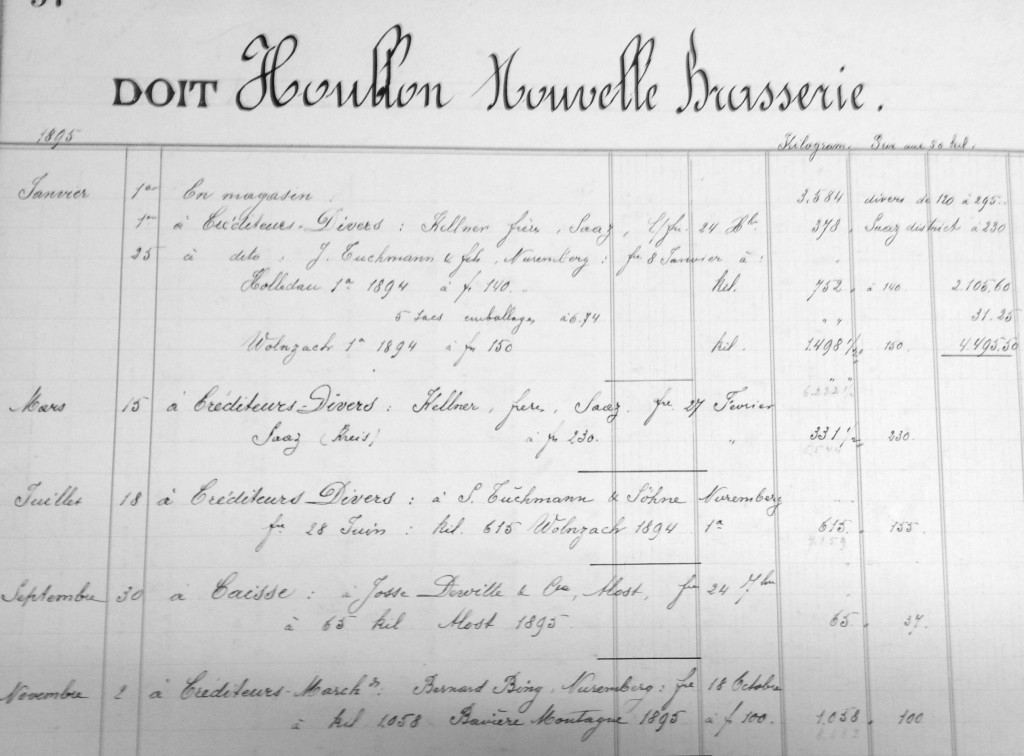 DOIT Houblon Nouvelle Brasserie.
1895 Kilogram. Prix aux 50 kil.
Janvier 1er En magasin. 3.584 divers de 120 à 295
1er à Créditeurs-Divers : Kellner frères, Saaz, 24 378 Saaz district à 230
25 à dito, J. Tuchmann & fils, Nuremberg : fre 8 Janvier à :
Holledau 1a 1894 à fr 140. kil. 752 à 140 2.105,60
5 sacs emballages à 6.74 " " 31.25
Wolnzach 1a 1894 à frs 150 kil. 1.498 1/2 150. 4.495.50
" "
Mars 15 à Créditeurs-Divers : Kellner, freres, Saaz. fre 27 Fevrier
Saaz (Kreis) à frs 230. " 331 1/2 230.
Juillet 18 à Créditeurs-Divers : à S. Tuchmann & Söhne Nuremberg
fre 28 Juin : kil. 615 Wolnzach 1894 1a 615. 155
Septembre 30 à Caisse : à Josse Dewitte & Cie, Alost, fre 24 7bre
à 65 kil Alost 1895. 65 37.
Novembre 2 à Créditeurs-Marchds : Bernard Bing, Nuremberg : fre 18 Octobre
à kil 1.058 Bavière Montagne 1895 à f 100. 1.058 100